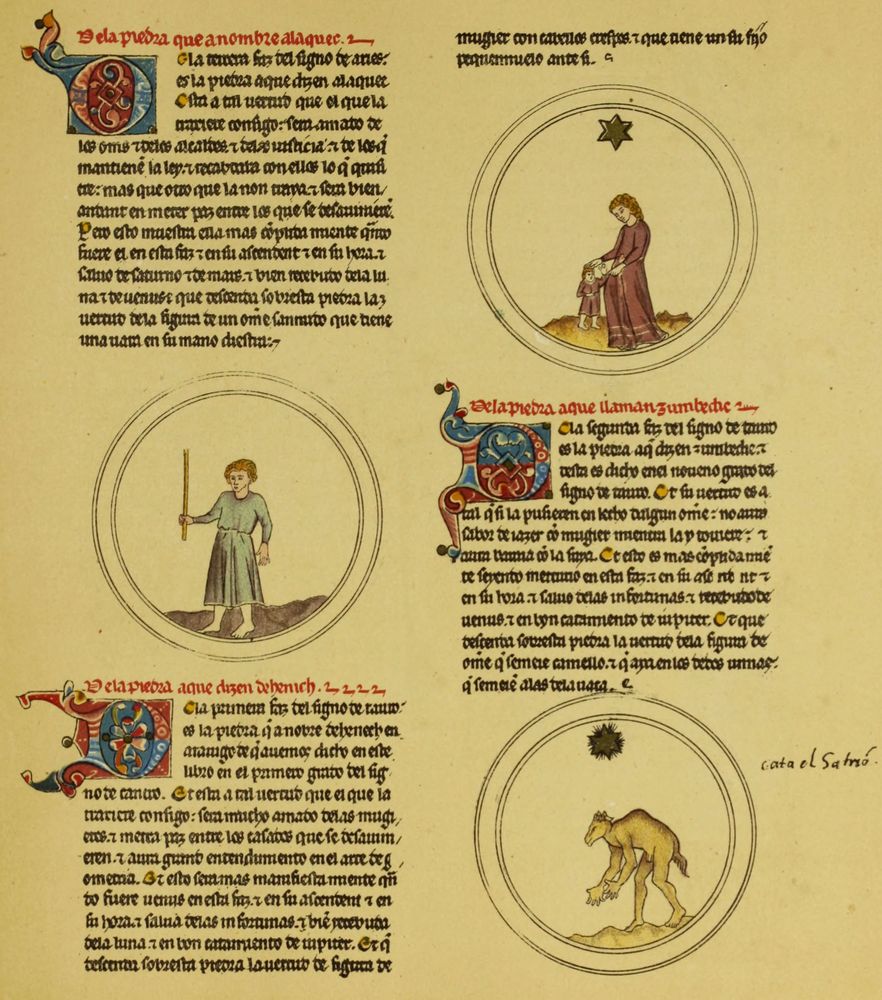 De la piedra que a nombre alaquec.
De la tercera faz del signo de aries:
es la piedra a que dizen alaquec
Esta a tal uertud que el que la
traxiere consigo: sera amado de
los oms ⁊ delos alcaldes. ⁊ dela iusticia. ⁊ de los q̃
mantienẽ la ley. ⁊ recabdara con ellos lo q̃ quisi
ere: mas que otro que la non traya. ⁊ sera bien
andant en meter paz entre los que se desauinierẽ.
Pero esto muestra ella mas cõplida miente quãdo
fuere el en esta faz ⁊ en su ascendent ⁊ en su hora. ⁊
saluo de saturno ⁊ de mars. ⁊ bien recebudo dela lu
na ⁊ de uenus: ⁊ que descenda sobresta piedra la
uertud dela figura de un om̃e sannudo que tiene
una uara en su mano diestra:
De la piedra a que dizen dehenich.
De la primera faz del signo de tauro:
es la piedra q̃ a nõbre dehenech en
arauigo de q̃ auemos dicho en este
libro en el primero grado del sig
no de cancro. Et esta a tal uertud que el que la
traxiere consigo: sera mucho amado delas mugi
eres. ⁊ metra paz entre los casados que se desauin
eren. ⁊ aura grand entendimiento en el arte de g
ometria. Et esto sera mas manifiesta miente quã
do fuere uenus en esta faz. ⁊ en su ascendent ⁊ en
su hora. ⁊ salua delas infortunas. ⁊ biẽ recebuda
dela luna. ⁊ en bon catamiento de iupiter. Et q̃
descenda sobresta piedra la uertud de figura de
mugier con cauellos crespos. ⁊ que tiene un su fijo
pequennuelo ante si.
De la piedra a que llaman zumbedic
De la segunda faz del signo de tauro
es la piedra aq̃ dizen zumbedic. ⁊
desta es dicho enel noueno grado del
signo de tauro. Et su uertud es a
tal q̃ si la pusieren en lecho dalgun om̃e: no aura
sabor de iazer cõ mugier mientra la y touiere: ⁊
aura danna cõ la suya. Et esto es mas cõplida miẽ
te seyendo mercurio en esta faz. ⁊ en su ascendent ⁊
en su hora ⁊ saluo delas infortunas. ⁊ recebudo de
uenus. ⁊ en bon catamiento de iupiter. Et que
descenda sobresta piedra la uertud dela figura de
om̃e q̃ semeie camello. ⁊ q̃ aya en los dedos unnas:
q̃ semeiẽ alas dela uaca.
cata el